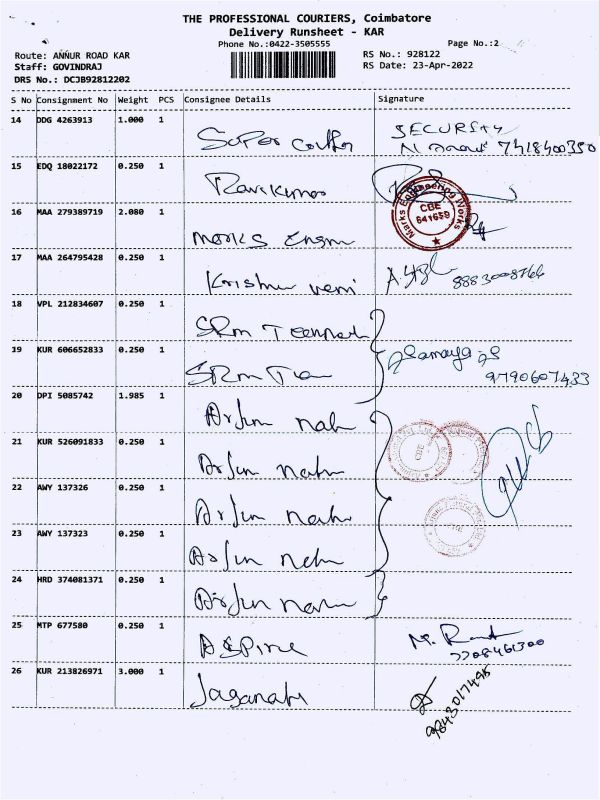 THE PROFESSIONAL COURIERS, Coimbatore
Delivery Runsheet - KAR
Phone No.:0422-3505555
Page No.:2
Route: ANNUR ROAD KAR
RS No.: 928122
Staff: GOVINDRAJ
RS Date: 23-Apr-2022
DRS No.: DCJB92812202
S No Consignment No Weight PCS Consignee Details Signature
14 DDG 4263913 1.000 1 Super SECURITY
7418400350
15 EDQ 18022172 0.250 1 Ravikumar
16 MAA 279389719 2.080 1 Marks Engm
Marks Engineering Works
CBE
641659
17 MAA 264795428 0.250 1 Krishna veni 8883008766
18 VPL 212834607 0.250 1 SRM
19 KUR 606652833 0.250 1 SRM Ramaya
9790607433
20 DPI 5085742 1.985 1 Arjun
21 KUR 526091833 0.250 1 Arjun
22 AWY 137326 0.250 1 Arjun
23 AWY 137323 0.250 1 Arjun
24 HRD 374081371 0.250 1 Arjun
25 MTP 677580 0.250 1 ASpire
7708461300
26 KUR 213826971 3.000 1 Jaganath
9843017495